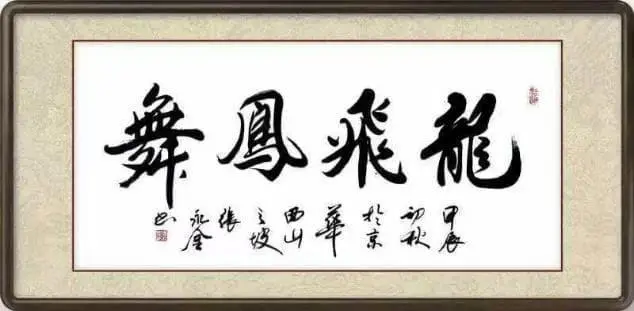 龍飛鳳舞
甲辰
初秋
於京
華
西山
之坡
張
永金
书